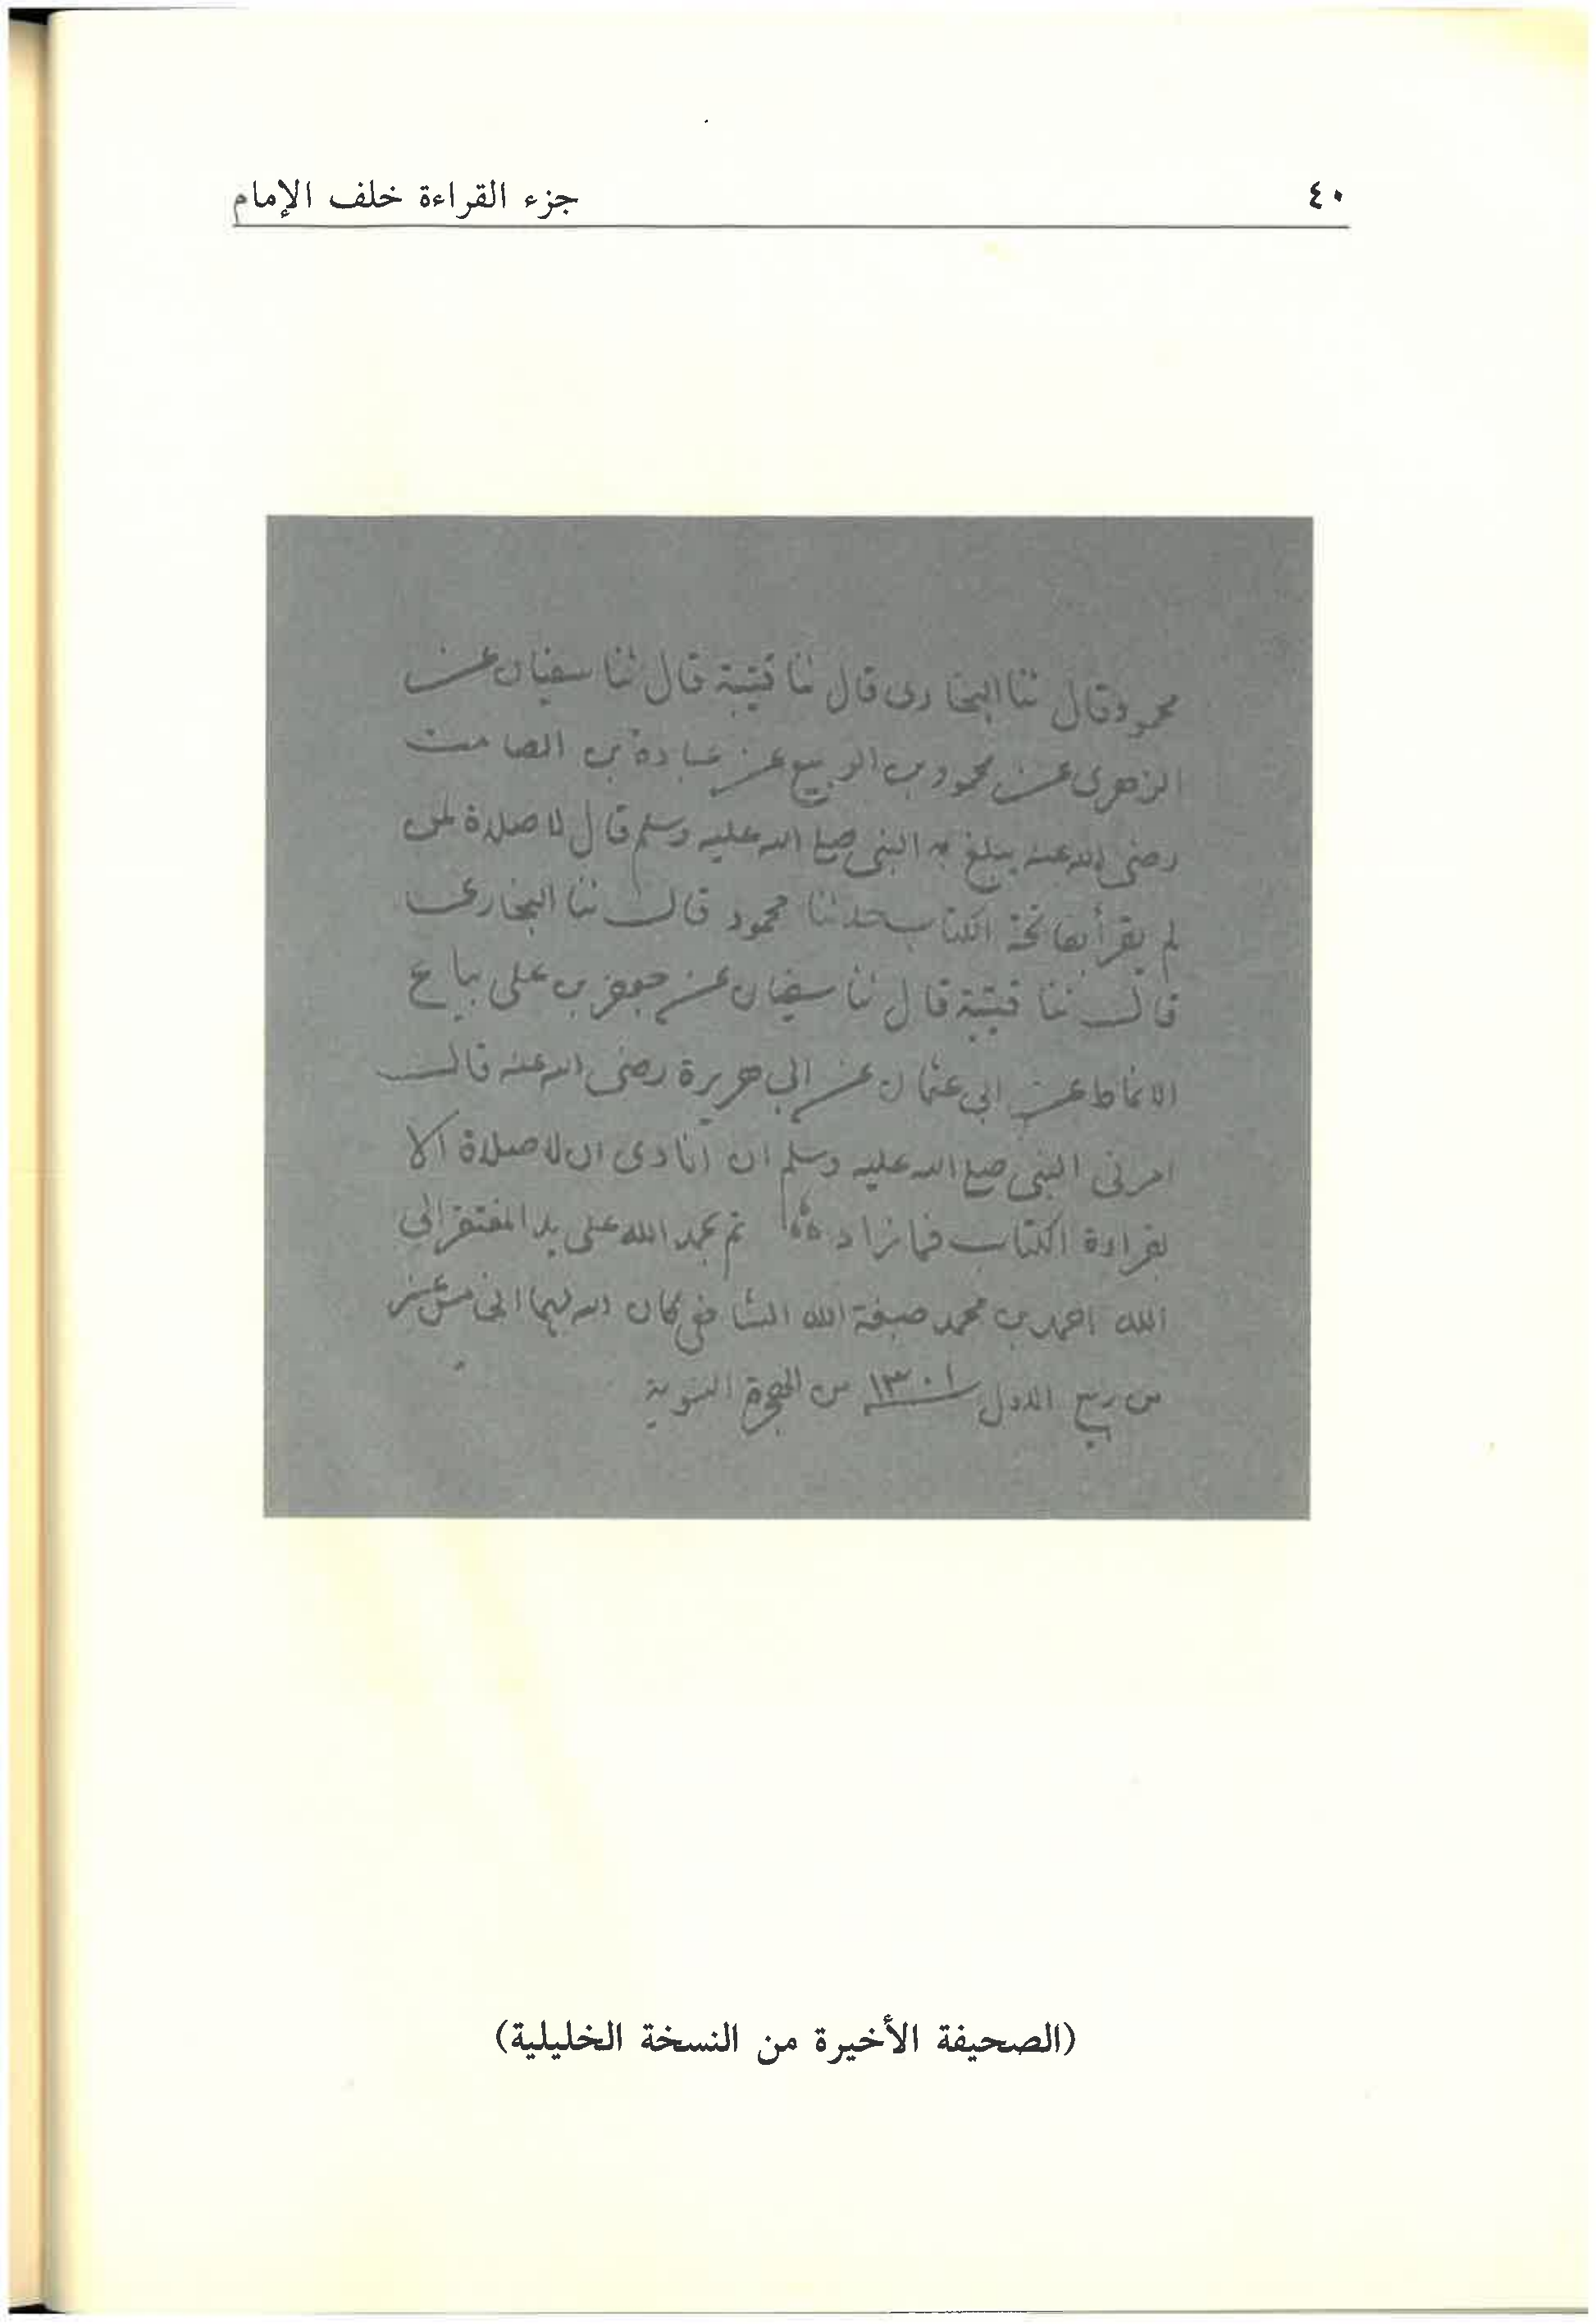 ٤٠
جزء القراءة خلف الإمام
محمود قال ثنا البخارى قال ثنا قتيبة قال ثنا سفيان عن
الزهرى عن محمود بن الربيع عن عبادة بن الصامت
رضى الله عنه يبلغ به النبى صلى الله عليه وسلم قال لا صلاة لمن
لم يقرأ بفاتحة الكتاب حدثنا محمود قال ثنا البخارى
قال ثنا قتيبة قال ثنا سفيان عن جعفر بن على بياع
الانماط عن ابى عثمان عن ابى هريرة رضى الله عنه قال
امرنى النبى صلى الله عليه وسلم ان أنادى ان لا صلاة الا
بقراءة الكتاب فما زاد تم بحمد الله على يد المفتقر الى
الله احمد بن محمد صبغة الله الشافعى كان الله لهما
من ربيع الاول ١٣٠١ من الهجرة النبوية
(الصحيفة الأخيرة من النسخة الخليلية)